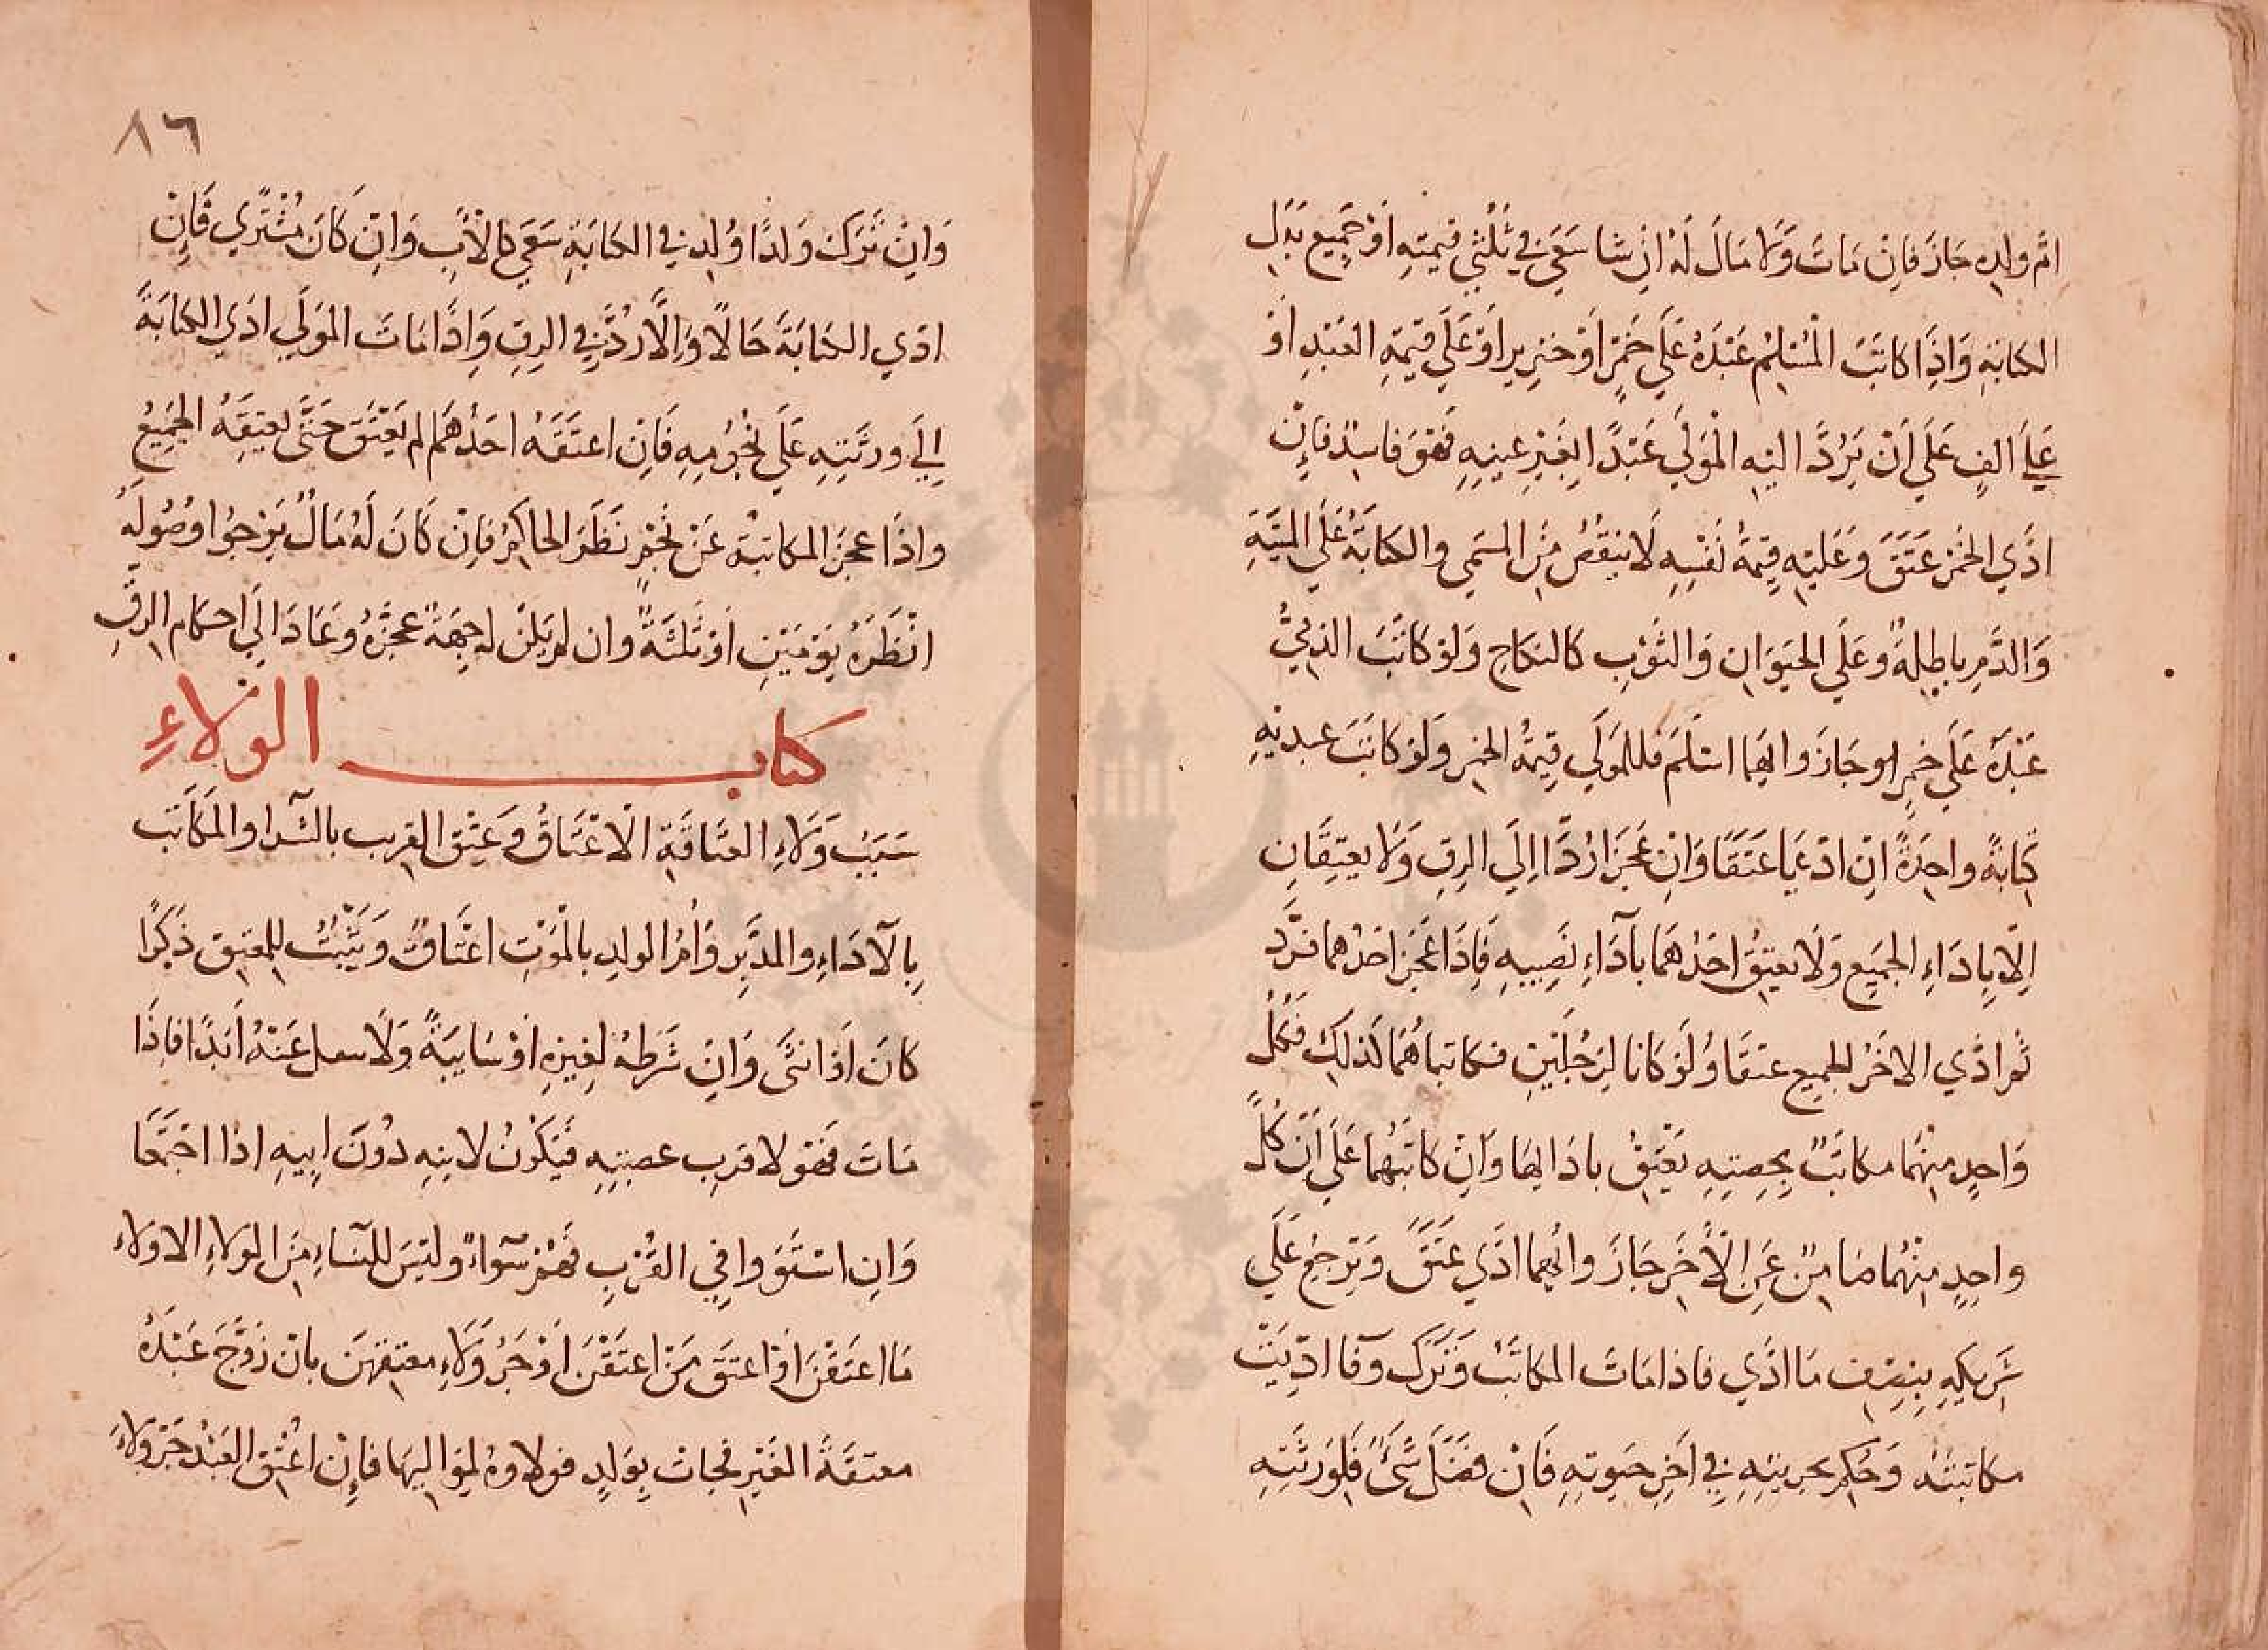 امّ ولده جَازَ فَاِنْ مَاتَ وَلَا مَالَ لَهُ اِنْ شَا سَعَى فِي ثُلُثَي قيمتِهِ اَوْ جَمِيعِ بَدَلِ
الكتابَةِ وَاِذَا كاتَبَ الْمُسْلِمُ عَبْدَهُ عَلَي خَمْرٍ اَوْ خنزِيرٍ اَوْ عَلَي قيمَةِ العَبْدِ اَوْ
عَلَي الفٍ عَلَي اَنْ يَرُدَّ اليْهِ الْمَوْلَي عَبْدًا بِغَيْرِ عينِهِ فَهْوَ فاسِدٌ فاِنْ
ادَّي الخمْرَ عَتَقَ وَعَلَيْهِ قِيمَةُ نَفْسِهِ لَا يَنقُصُ مِنَ المسَمي والكتابَةُ عَلَي الميْتَةِ
وَالدَّمِ باطِلَةٌ وعَلَي الحيَوَانِ وَالثَوْبِ كالنكَاحِ وَلوْ كاتَبَ الذِمِيُّ
عَبْدَهُ عَلَي خمِرٍ جَازَ وايهمَا اسْلَمَ فللمَوْلَي قيمَةُ الخمْرِ وَلوْ كاتَبَ عبدَيْهِ
كِتابةً واحِدَةً اِنْ ادّيَا عَتَقَا وَاِنْ عَجَزَا رُدَّا اِلَي الرِقِ وَلَا يعتِقَانِ
اِلّا بِادَاءِ الجميَعِ وَلَا يعتِقُ احَدُهمَا بِآدَاءِ نَصِيبِهِ فَاِذَا عَجَزَ احَدُهمَا فرُدَّ
ثم ادّي الاخَرُ الجميعَ عتقَا وَلَوْ كَانَا لِرَجُلَيْنِ فكاتباهُمَا كَذلِكَ فكُلُّ
وَاحِدٍ منْهُمَا مكاتَبٌ بِحِصتِهِ يَعْتِقُ بادَائِهَا وَاِنْ كَاتَبَهُما عَلَي اَنّ كُلَّ
واحِدٍ مِنْهُمَا ضَامِنٌ عَنِ الْاَخَرِ جَازَ وايُهما ادَّي عَتَقَ وَيَرْجِعُ عَلَي
شَرِيكِهِ بِنِصْفِ مَا ادَّي فاذا مَاتَ المكاتَبُ وَتَرَكَ وفَا ادِّيَتْ
مكاتبتُه وَحُكِمَ بحرِيتِهِ في اَخِرِ حَيٰوتِهِ فَاِنْ فضَلَ شَئٌ فَلِوَرَثَتِهِ
٨٦
وَاِنْ تَرَكَ وَلدًا وُلِدَ فِي الكتابَةِ سَعَي كالْاَبِ وَاِنْ كَانَ مُشْتَرًي فَاِنْ
ادّي الكتابَةَ حَالًا وَاِلَّا رُدَّ فِي الرِقِ وَاِذَا مَاتَ المَوْلَي ادّي الكتابَةَ
اِلَي ورثَتِهِ عَلَي نجُومِهِ فَاِنْ اعتَقَهُ احَدُهم لم يَعْتَقْ حَتَّى يعتِقَهُ الجَمِيعُ
واذَا عجزَ المكاتبُ عَنْ نَجْمٍ نظَرَ الحاكِمُ فَاِنْ كَانَ لَهُ مَالٌ يَرْجُوا وُصُولَهُ
انْظَرَهُ يَوْمَيْنِ اَوْ ثَلٰثَةً وان لم يَكنْ له جِهَةٌ عجّزَهُ وَعَادَ اِلَي احكام الرِقِّ
كتاب الولاءِ
سَبَبُ وَلَاءِ العتَاقَةِ الْاعْتَاقُ وَعِتْق القرِيب بالشّرا والمكَاتَب
بِالْآدَاءِ والمدَبَّرِ وَاُمُ الولدِ بالمَوْتِ اعْتَاقٌ وَيَثْبُتُ لِلمعتِقِ ذَكَرًا
كَانَ اَوْ انثَى وَاِنْ شَرَطَهُ لِغيرِهِ اَوْ سَايِبَةً وَلَا ينتقل عَنْهُ اَبَدًا فاِذَا
مَاتَ فَهْوَ لاقرَبِ عصبتِهِ فَيَكُونُ لابنِهِ دُونَ ابِيهِ اذا اجْتَمَعَا
وَاِن اسْتَوَوا فِي القُرْبِ فَهُمْ سَوآءٌ وليْسَ لِلنّسَاءِ مِنَ الولاءِ الا وَلاءَ
مَا اعتَقْنَ اَوْ اعتَقَ مَنْ اعتَقْنَ اَوْ جَرَّ وَلَاءَ معتقهنَ بان زَوَّجَ عَبْدُهُ
معتقَةَ الغَيْرِ فجَاتْ بِوَلَدٍ فولاوهُ لِمَوَاليهَا فاِن اعْتِقَ العَبْدُ جَرَّ وَلاءَ